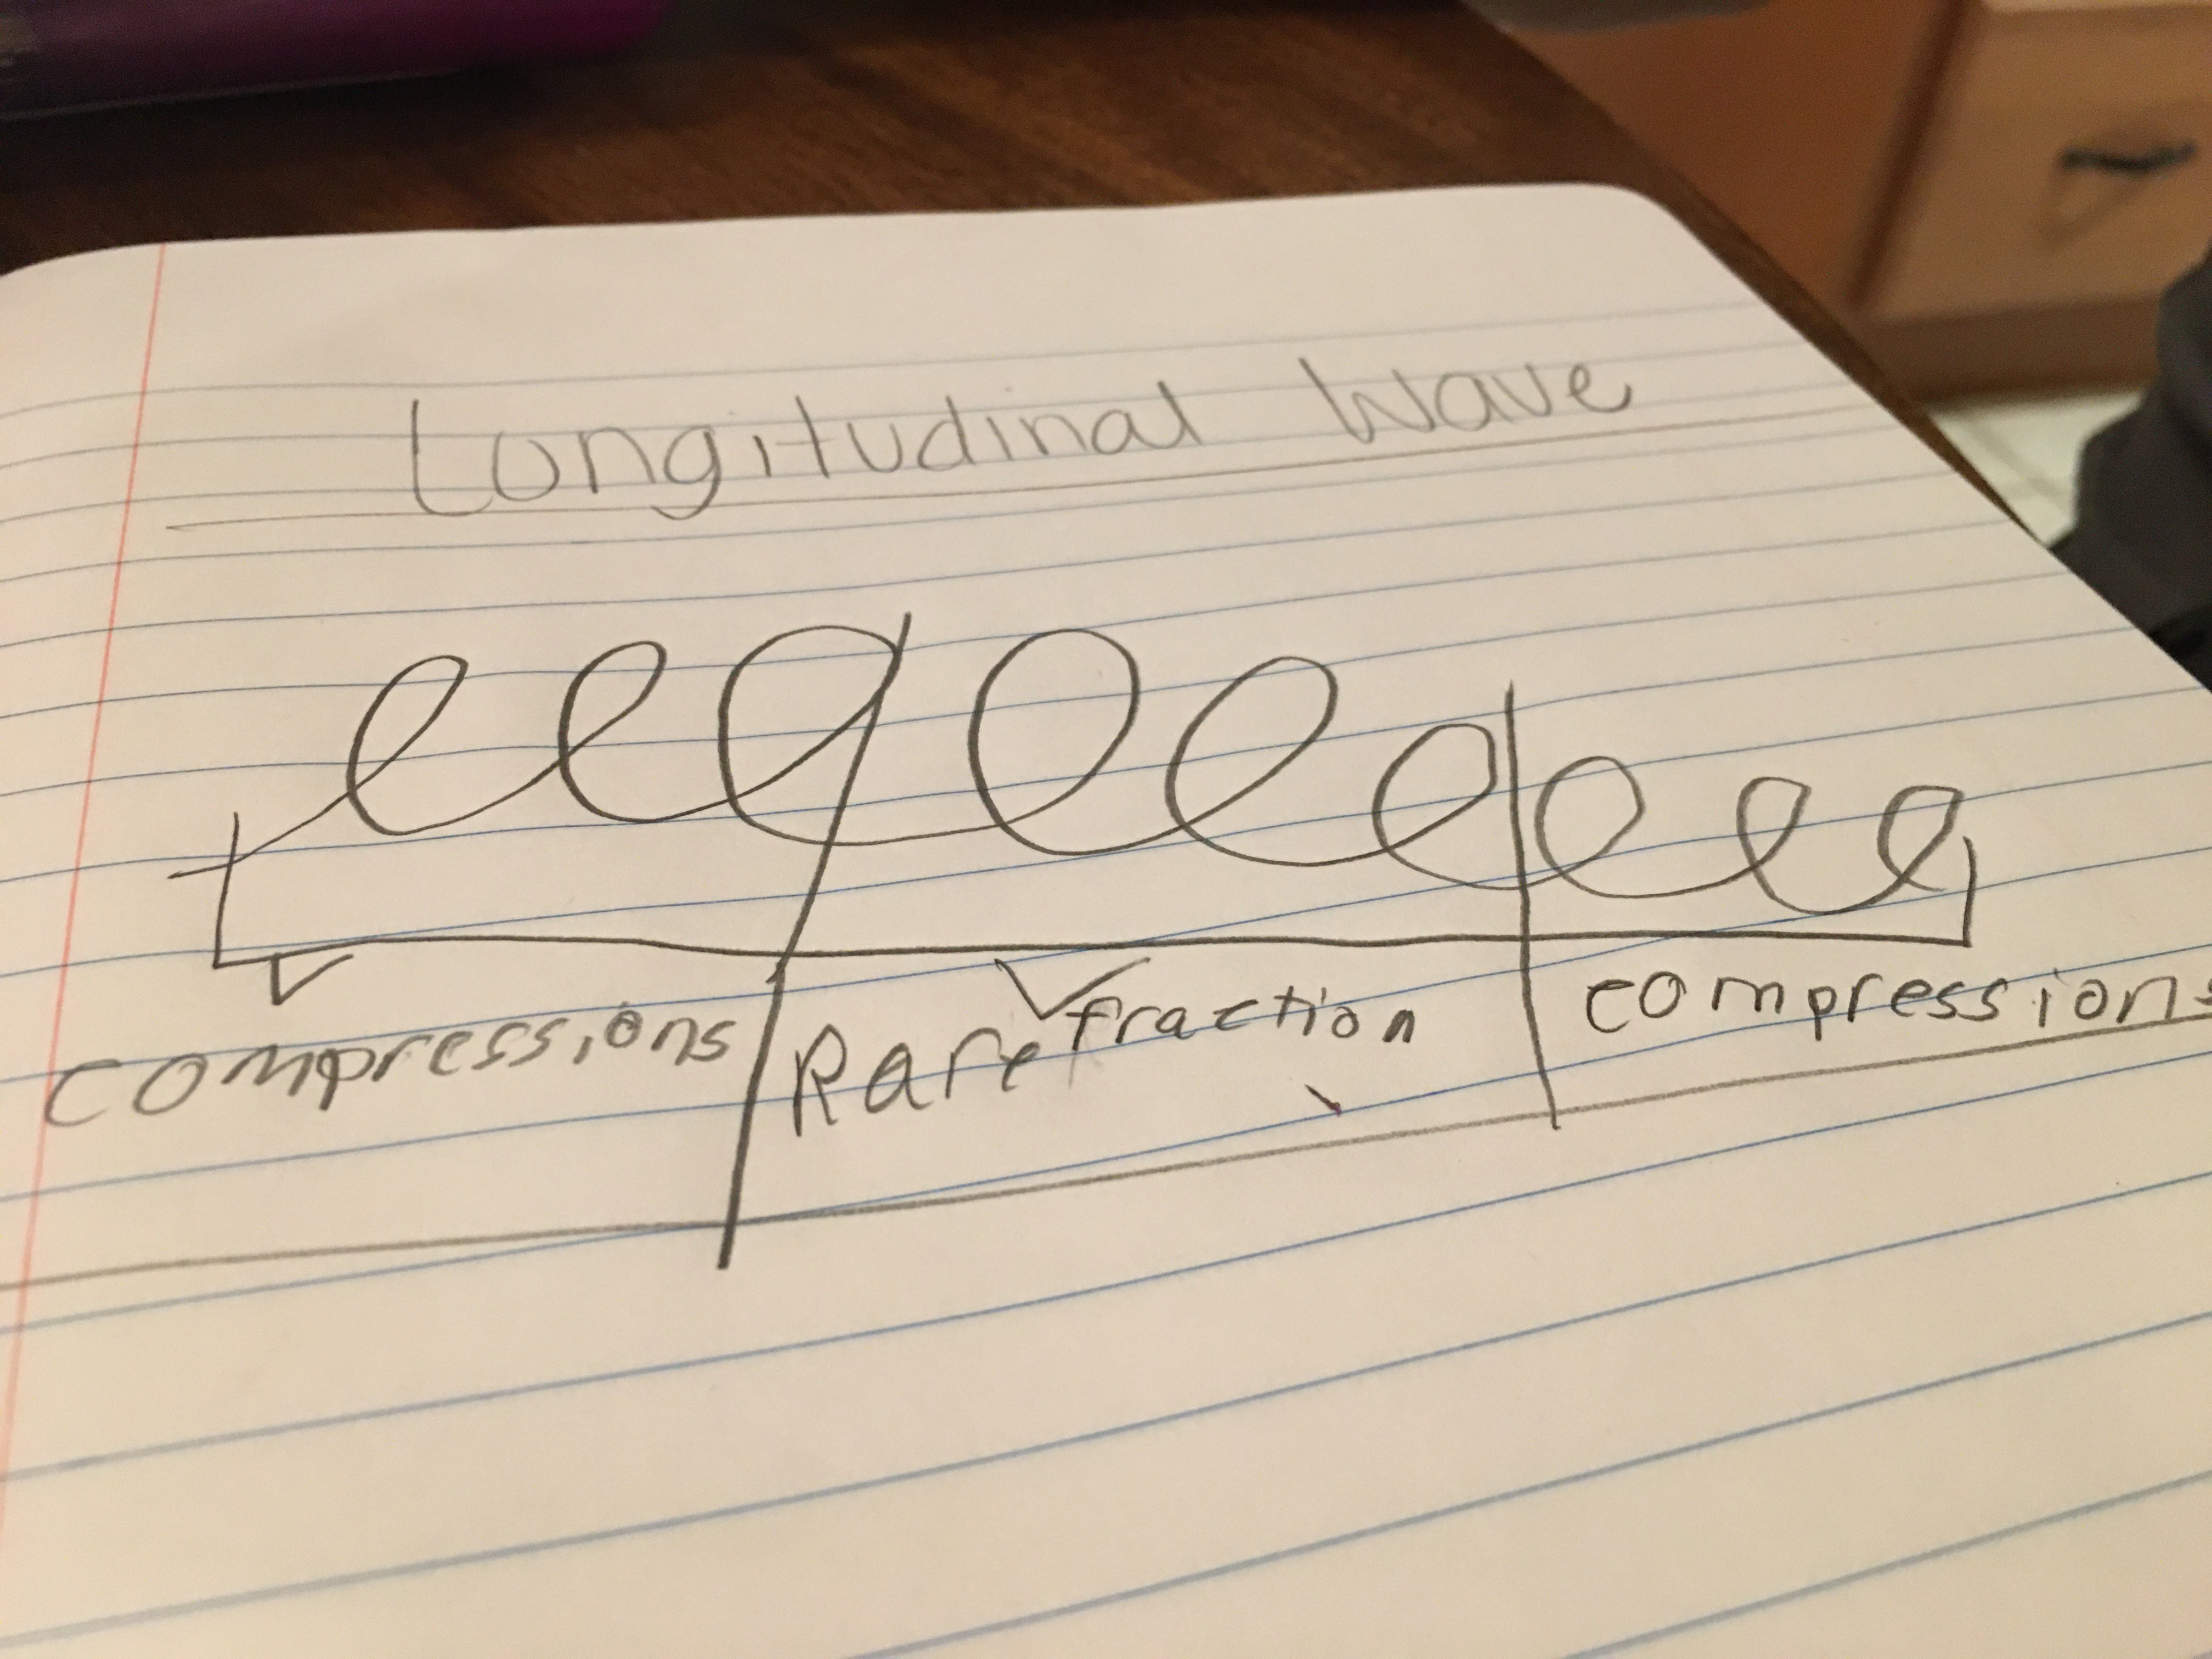 Longitudinal Wave
compressions
Rarefraction
compressions